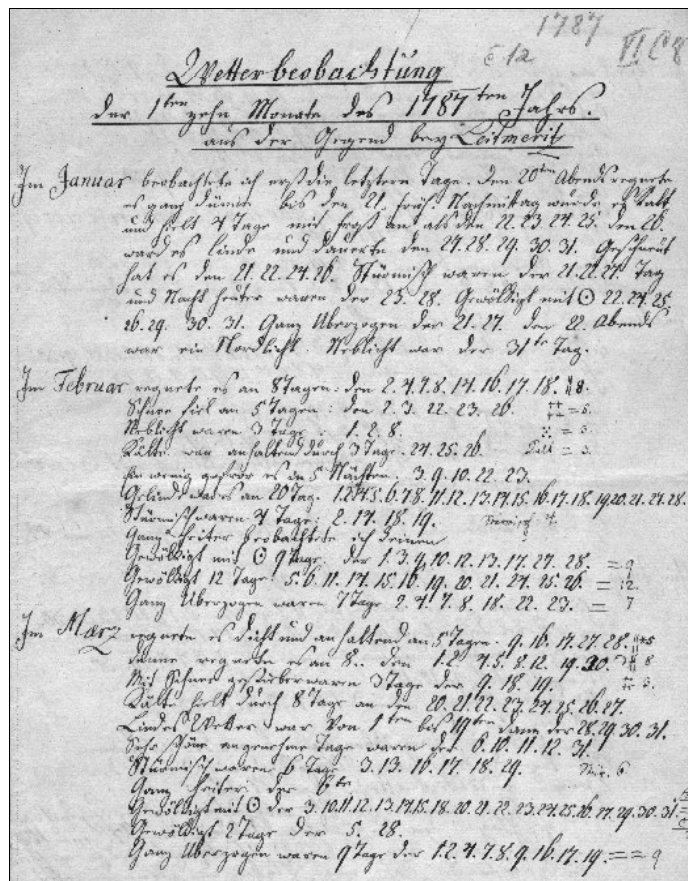 1787
C 12
VI C 8
Wetterbeobachtung
der 1ten zehn Monate des 1787ten Jahrs.
aus der Gegend bey Leitmeritz
Im Januar beobachtete ich erst die letztern Tage. Den 20ten Abends regnete
es ganz bis den 21. früh. Nachmittag wurde es kalt
und hielt 4 Tage mit Frost an als den 22. 23. 24. 25. den 26.
ward es linde und dauerte den 27. 28. 29. 30. 31. Geschneit
hat es den 21. 22. 24. 26. Stürmisch waren der 21. 22. 24. Tag
und Nacht heuter waren der 23. 28. Gewölkigt mit ⊙ 22. 24. 25.
26. 29. 30. 31. Ganz Uberzogen der 21. 27. den 22. Abends
war ein Nordlicht. Neblicht war der 31te Tag.
Im Februar regnete es an 8 Tagen: den 2. 4. 7. 8. 14. 16. 17. 18. 8.
Schnee fiel an 5 Tagen: den 2. 3. 22. 23. 26. = 5.
Neblicht waren 3 Tage: 1. 2. 8. = 3.
Kälte war anhaltend durch 3 Tage. 24. 25. 26. Kält = 3.
Ein wenig gefror es in 5 Nächten: 3. 9. 10. 22. 23.
Gelind war es an 20 Tag. 1. 2. 4. 5. 6. 7. 8. 11. 12. 13. 14. 15. 16. 17. 18. 19. 20. 21. 27. 28.
Stürmisch waren 4 Tage: 2. 14. 18. 19. 4.
Ganz heiter beobachtete ich keinen
Gewölkigt mit ⊙ 9 Tage. der 1. 3. 9. 10. 12. 13. 17. 27. 28. = 9
Gewölkigt 12 Tage: 5. 6. 11. 14. 15. 16. 19. 20. 21. 24. 25. 26. = 12.
Ganz Uberzogen waren 7 Tage 2. 4. 7. 8. 18. 22. 23. = 7
Im Mærz regnete es dicht und anhaltend an 5 Tagen. 9. 16. 17. 27. 28. 5
dünne regnete es an 8.. den 1. 2. 4. 5. 8. 12. 19. 30. 8
Mit Schnee waren 3 Tage der 9. 18. 19. 3.
Kälte hielt durch 8 Tage an den 20. 21. 22. 23. 24. 25. 26. 27.
Lindes Wetter war von 1ten bis 19ten dann der 28. 29. 30. 31.
Sehr schöne angenehme Tage waren der 6. 10. 11. 12. 31.
Stürmisch waren 6 Tage 3. 13. 16. 17. 18. 29. 6
Ganz heiter der 6te
Gewölkigt mit ⊙ der 3. 10. 11. 12. 13. 14. 15. 18. 20. 21. 22. 23. 24. 25. 26. 27. 29. 30. 31.
Gewölkigt 2 Tage der 5. 28.
Ganz Uberzogen waren 9 Tage der 1. 2. 4. 7. 8. 9. 16. 17. 19. == 9